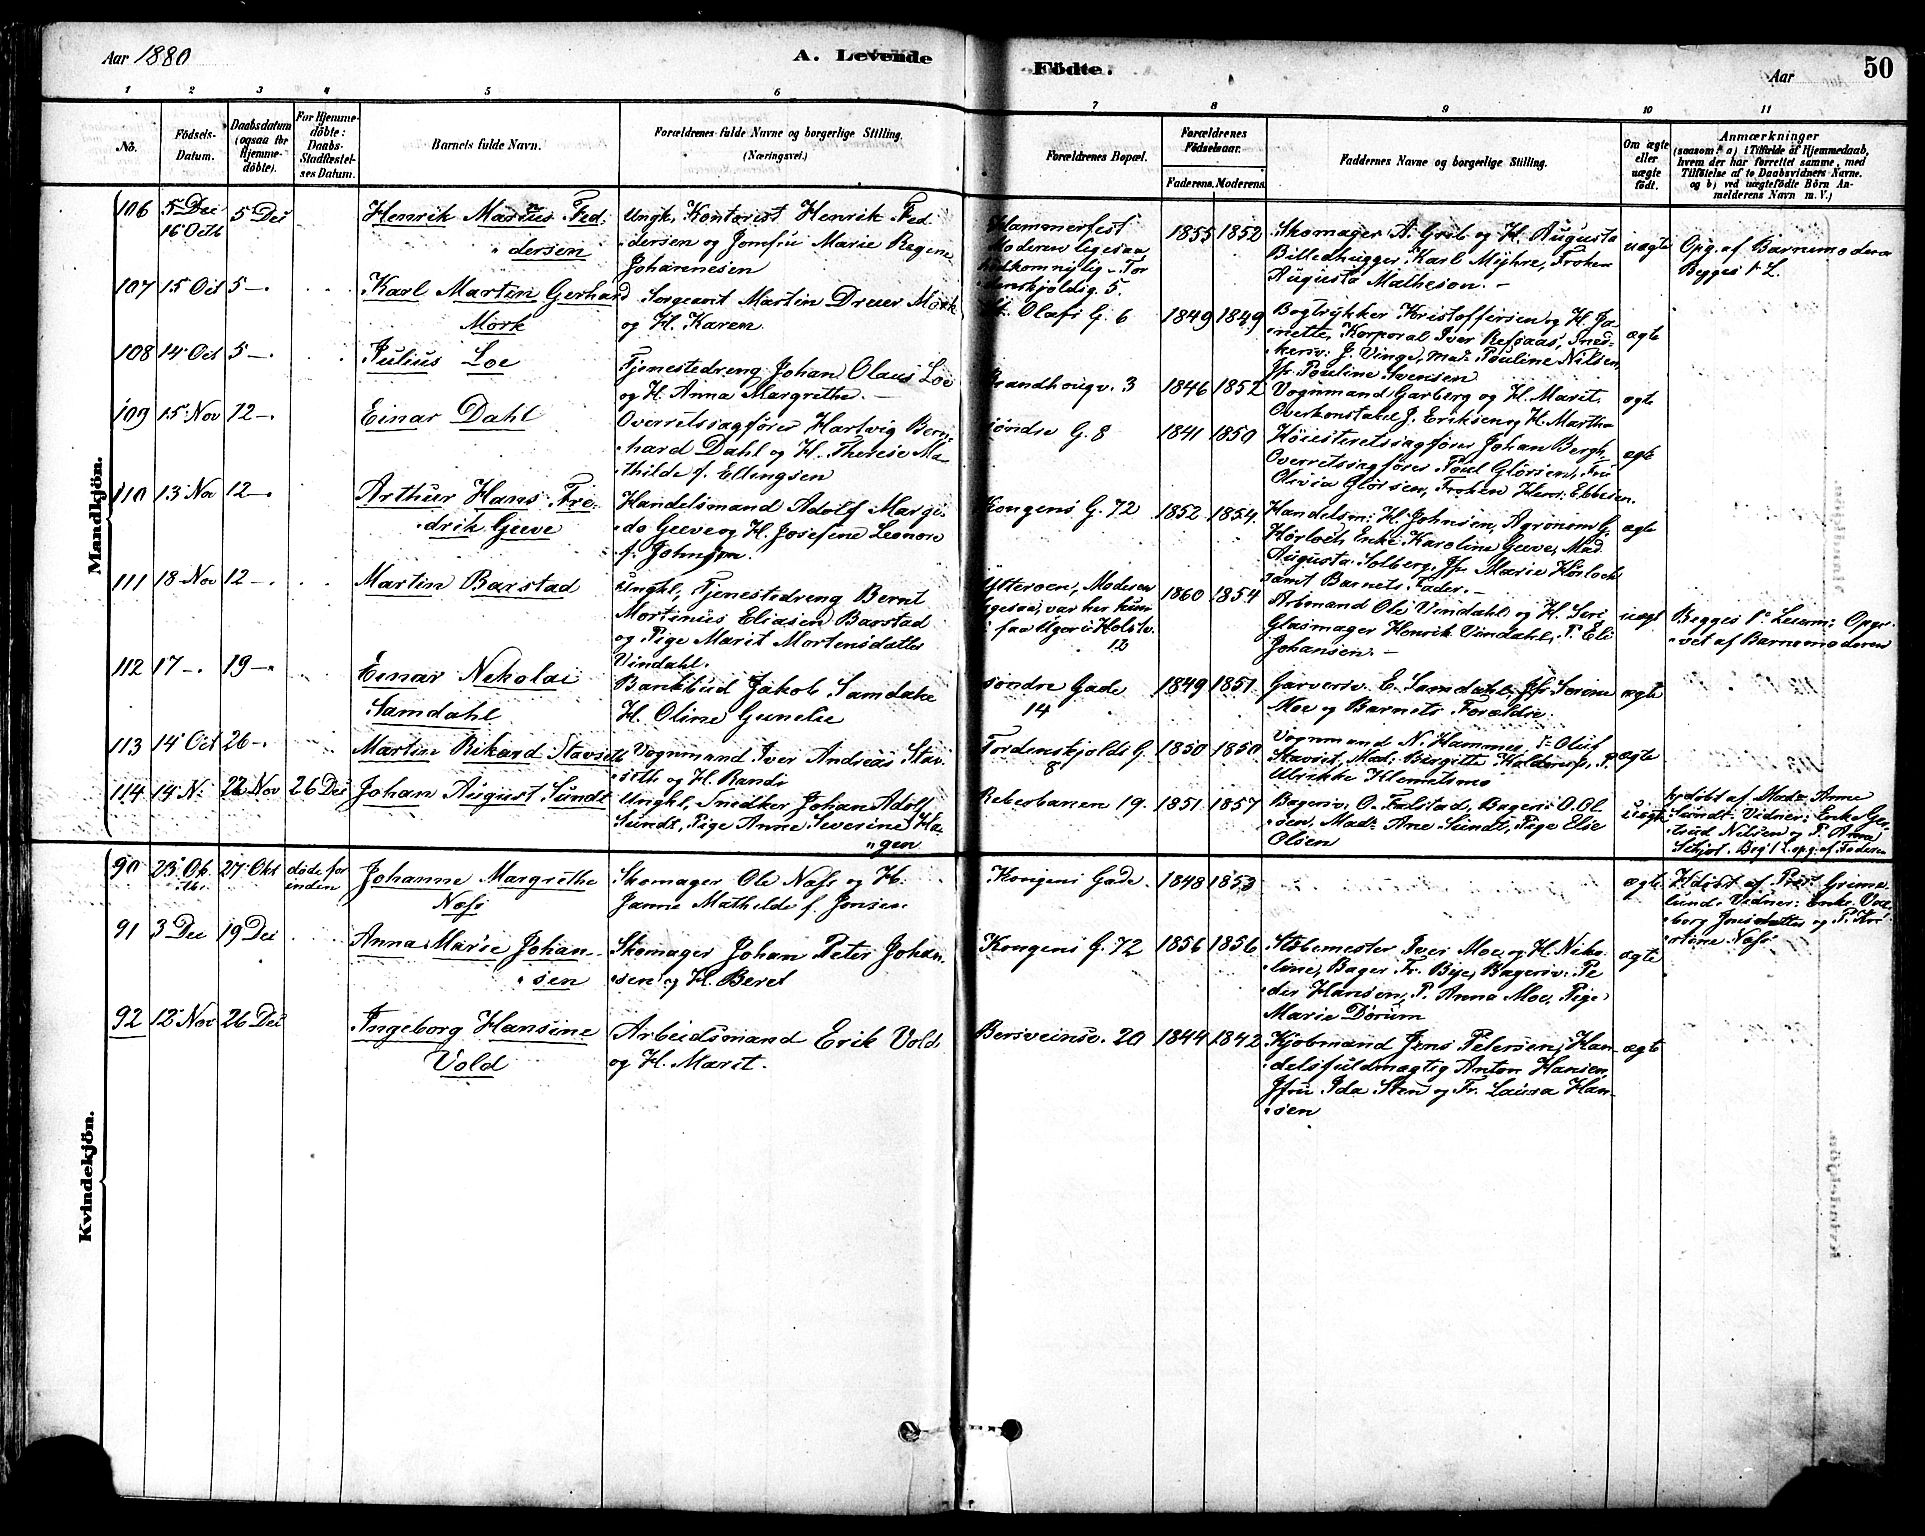 Aar 1880
A. Levende
Födte.
Aar
50
1 2 3 4 5 6 7 8 9 10 11
No.
Födsels-Datum.
Daabsdatum (ogsaa for Hjemme-döbte).
For Hjemme-döbte: Daabs-Stadfæstel-ses Datum.
Barnets fulde Navn.
Forældrenes fulde Navne og borgerlige Stilling. (Næringsvei.)
Forældrenes Bopæl.
Forældrenes Födselsaar.
Faderens. Moderens.
Faddernes Navne og borgerlige Stilling.
Om ægte eller uægte födt.
Anmærkninger
(saasom: a) i Tilfælde af Hjemmedaab, hvem der har forrettet samme, med Tilföielse af to Daabsvidners Navne. og b) ved uægtefödte Börn Anmelderens Navn m. V.)
Mandkjön.
106 5 Dec 16 Octb 5 Dec Henrik Marius Fed-
dersen
Ungk, Kontorist Henrik Fed-
dersen og Jomfru Marie Regine
Johannesen
Hammerfest
Moderen ligesaa
5.
1855 1852
Skomager A. Grib og H. Augusta
Billedhugger Karl Myhre, Frøken
Augusta Matheson. -
uægte
Opg. af Barnemoderen
Begges 1 L.
107 15 Oct 5 -. Karl Martin Gerhard
Mørk
Sergeant Martin Dreier Mørk
og H. Karen
St. Olafs G. 6
1849 1849
Bogtrykker Kristoffersen og H. Ja-
nette, Korporal Iver Refsaas, Sned-
kersv: J. Vinge, Mad: Pauline Nilsen,
Jfr. Pauline Svensen
ægte
108 14 Oct 5 -. Julius Loe
Tjenestedreng Johan Olaus Loe
og H. Anna Margrethe. -
Brandhougv. 3
1846 1852
Vognmand Garberg og H. Marit.
Overkonstabel J. Eriksen og H. Martha
ægte
109 15 Nov 12 -. Einar Dahl
Overretssagfører Hartvig Bern-
hard Dahl og H. Therese Ma-
thilde f. Ellingsen
Søndre G. 8
1841 1850
Høiesteretssagfører Johan Bergh,
Overretssagfører Poul Glørsen, Fru
Olivia Glørsen, Frøken Henr: Ebbesen.
ægte
110 13 Nov 12 -. Arthur Hans Fre-
drik Geeve
Handelsmand Adolf Margi-
do Geeve og H. Josefine Leonore
f. Johnsen.
Kongens G. 72
1852 1854
Handelsm: H. Johnsen, Agronom G.
Hörloch, Enke Karoline Geeve, Mad
Augusta Solberg, Jfr Marie Hörloch
samt Barnets Fader. -
ægte
111 18 Nov 12 -. Martin Barstad
Ungk, Tjenestedreng Bernt
Mortinus Eliasen Barstad
og Pige Marit Mortensdatter
Vindahl.
Ytterøen, Moderen
ligesaa, var her kun
12
1860 1854
Arbmand Ole Vindahl og H. Seri
Glasmager Henrik Vindahl, P. Eli
Johansen. -
uægt
Begges 1e Leierm: Opgi-
vet af Barnemoderen
112 17 -. 19 -. Einar Nekolai
Samdahl
Bankbud Jakob Samdahl
H. Oline Gunelie
Søndre Gade
14
1849 1851
Garversv. E. Samdahl, Jfr Serine
Moe og Barnets Forældre
ægte
113 14 Oct 26 -. Martin Rikard Stavseth
Vognmand Iver Andreas Stav-
seth og H. Randi
Tordenskjolds G.
8
1850 1850
Vognmand N. Hammer, Oluf
Stavset, Mad: Birgitte P.
Ulrikke
ægte
114 14 N. 22 Nov 26 Dec Johan August Sundt
Ungk, Snedker Johan Adolf
Sundt, Pige Anne Severine Ha-
gen
Reberbanen 19.
1851 1857
Bagersv. O. Falstad, Bagersv O. Ol-
sen, Mad: Ane Sundt, Pige Else
Olsen
uægte
hjdøbt af Mad: Anne
Sundt. Vidner: Enke Ger-
trud Nilsen og P. Anna
Begs 1 L. opg. af Faderen
Kvindekjön.
90 23 Ok-tb. 27 Okt døde for-inden Johanne Margrethe
Næss
Skomager Ole Næss og H.
Janne Mathilde f. Jonsen.
Kongens Gade.
1848 1853
ægte
Hdøbt af Præst Grime-
lund. Vidner: Enke
og P. Kri-
stine Næss
91 3 Dec 19 Dec Anna Marie Johan-
sen
Skomager Johan Peter Johan-
sen og H. Beret
Kongens G. 72
1856 1856
Støbemester Iver Moe og H. Niko-
line, Bager Fr. Bye, Bagersv: Pe
der Hansen, P. Anna Moe, Pige
Marie Dorum
ægte
92 12 Nov 26 Dec Ingeborg Hansine
Vold
Arbeidsmand Erik Vold
og H. Marit.
Bersveinsv. 20
1844 1842
Kjøbmand Jens Petersen, Han-
delsfuldmægtig Anton Hansen,
Jfru Ida Sten og Fr. Laura Han-
sen
ægte